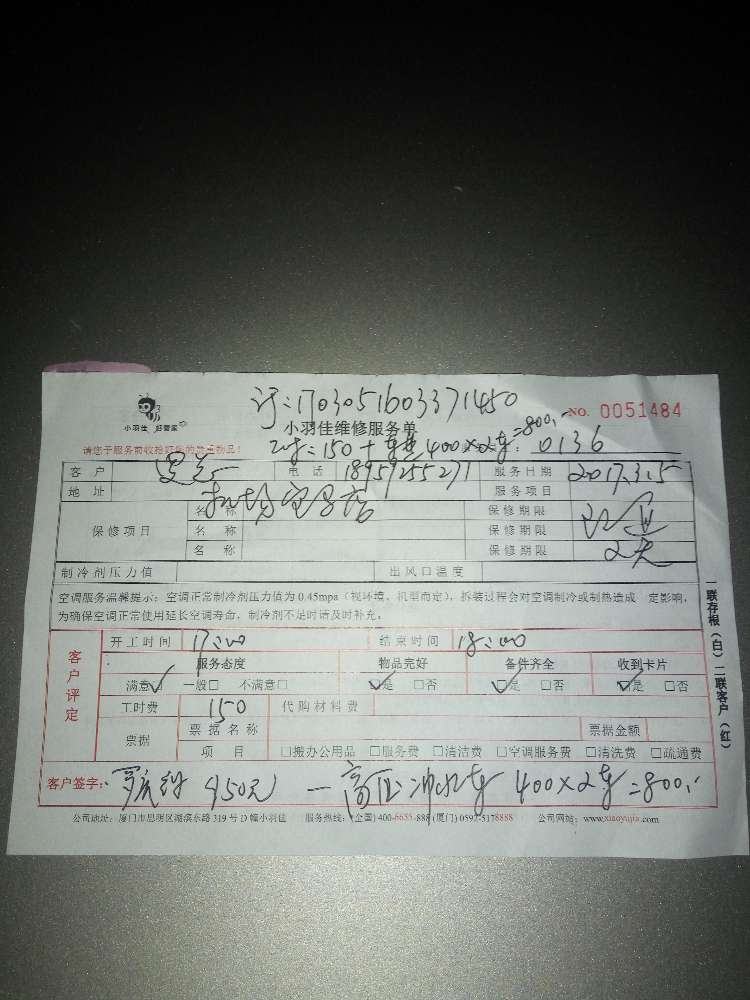 订:1703051603371450
小羽佳 好管家
小羽佳维修服务单
NO. 0051484
=800,-
请您于服务前收拾好您的贵重物品!
150+ 400×2车
0136
客 户 电 话 18959255271 服务日期 2017.3.5
地 址 服务项目
保修项目
名 称 保修期限
名 称 保修期限
名 称 保修期限 2天
制冷剂压力值 出风口温度
空调服务温馨提示:空调正常制冷剂压力值为 0.45mpa(视环境、机型而定),拆装过程会对空调制冷或制热造成一定影响,
为确保空调正常使用延长空调寿命,制冷剂不足时请及时补充。
客户评定
开工时间 17:00 结束时间 18:00
服务态度 物品完好 备件齐全 收到卡片
满意□ 一般□ 不满意□ □是 □否 □是 □否 □是 □否
工时费 150 代购材料费
票据 票据名称 票据金额
项 目 □搬办公用品 □服务费 □清洁费 □空调服务费 □清洗费 □疏通费
客户签字: 950元 一高压冲水车 400×2车=800,-
公司地址:厦门市思明区湖滨东路 319 号 D 幢小羽佳 服务热线:(全国) 400-6655-888 (厦门) 0592-5178888 公司网站:www.xiaoyujia.com
一联存根(白)二联客户(红)